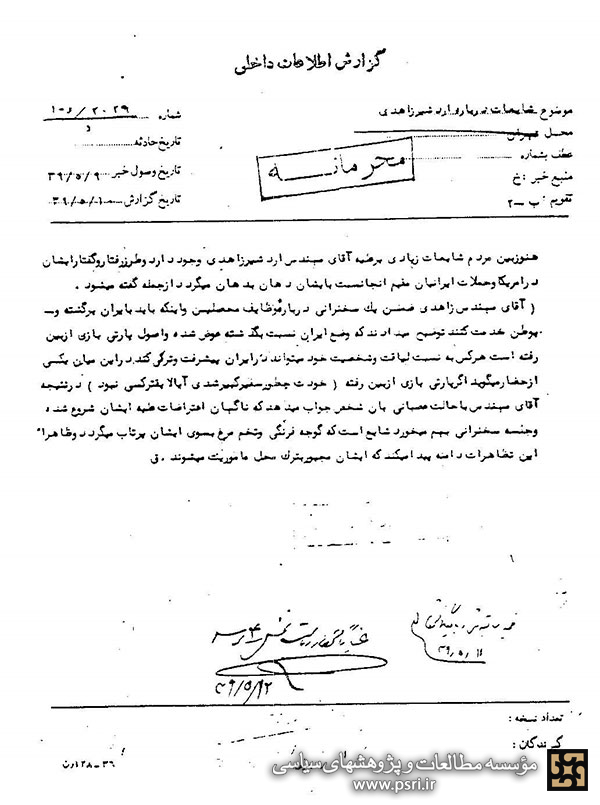 گزارش اطلاعات داخلی
موضوع شایعات درباره اردشیر زاهدی
شماره ۲۰۲۹ / ۱۰۵
محل تهران
تاریخ حادثه
عطف بشماره
محرمانه
تاریخ وصول خبر ۳۹/۵/۹
منبع خبر : خ
تاریخ گزارش ۳۹/۵/۱۰
تقویم : ب ـ ۲
هنوز بین مردم شایعات زیادی بر علیه آقای مهندس اردشیر زاهدی وجود دارد و طرز رفتار و گفتار ایشان
در امریکا و حملات ایرانیان مقیم انجا نسبت بایشان دهان بدهان میگردد از جمله گفته میشود .
( آقای مهندس زاهدی ضمن یک سخنرانی درباره وظایف محصلین و اینکه باید بایران برگشته و ـ
بوطن خدمت کنند توضیح میدادند که وضع ایران نسبت بگذشته عوض شده و اصول پارتی بازی از بین
رفته است هر کس به نسبت لیاقت و شخصیت خود میتواند در ایران پیشرفت و ترقی کند . در این میان یکی
از حضار میگوید اگر پارتی بازی از بین رفته ( خودت چطور سفیر کبیر شدی آیا لایقتر کسی نبود ) در نتیجه
آقای مهندس با حالت عصبانی بان شخص جواب میدهد که ناگهان اعتراضات علیه ایشان شروع شده
و جلسه سخنرانی بهم میخورد شایع است که گوجه فرنگی و تخم مرغ بسوی ایشان پرتاب میگردد و ظاهراً
این تظاهرات دامنه پیدا میکند که ایشان مجبور بترک محل ماموریت میشوند . ق
۳۹/۵/۱۱
۳۹/۵/۱۲
تعداد نسخه :
گیرندگان :
۳۶ ـ ۱۲۸ رن
مؤسسه مطالعات و پژوهشهای سیاسی
www.psri.ir